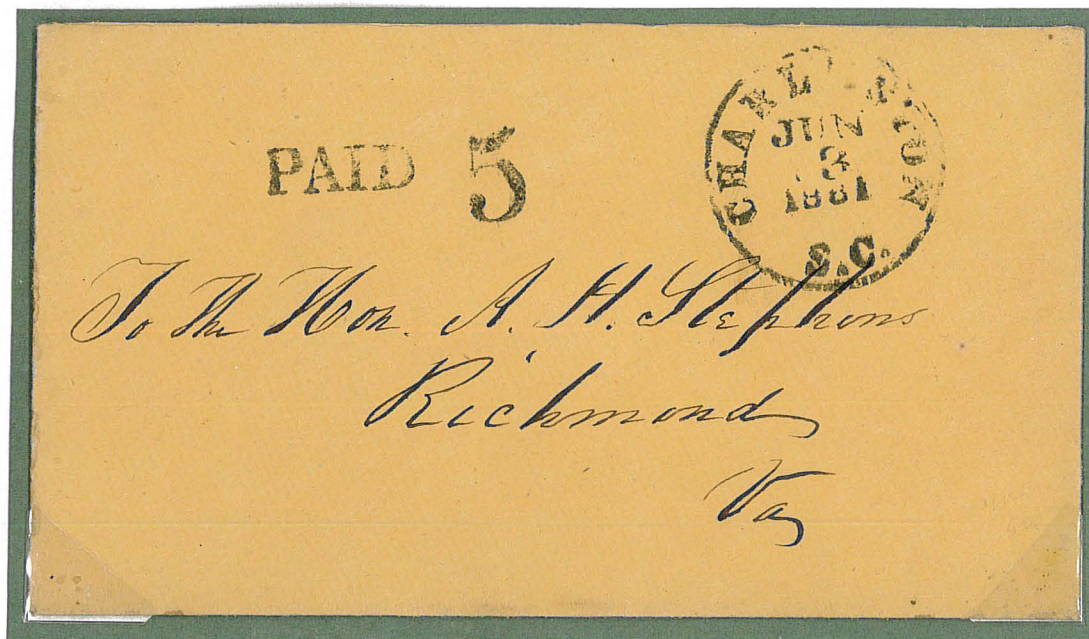 PAID 5
CHARLESTON
JUN
3
1861
S.C.
To the Hon. A. H. Stephens
Richmond
Va